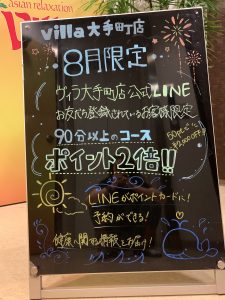 asian relaxation
villa 大手町店
8月限定
ヴィラ大手町店公式LINE
お友だち登録されているお客様限定
90分以上のコース
ポイント2倍!!
LINEがポイントカードに!
予約ができる!
健康に関する情報をお届け!